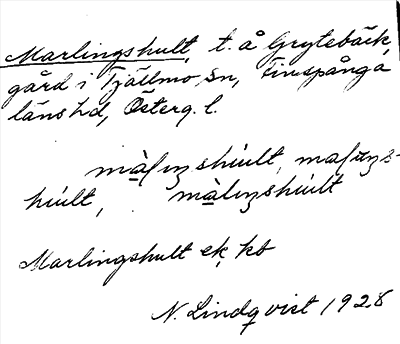 Marlingshult, t. å Grytebäck,
gård i Tjällmo sn, Finspånga
länshd, Österg. l.
màḷıŋshùlt, maḷıŋs-
hùlt, màlıŋshùlt
Marlingshult ek, kb
N. Lindqvist 1928